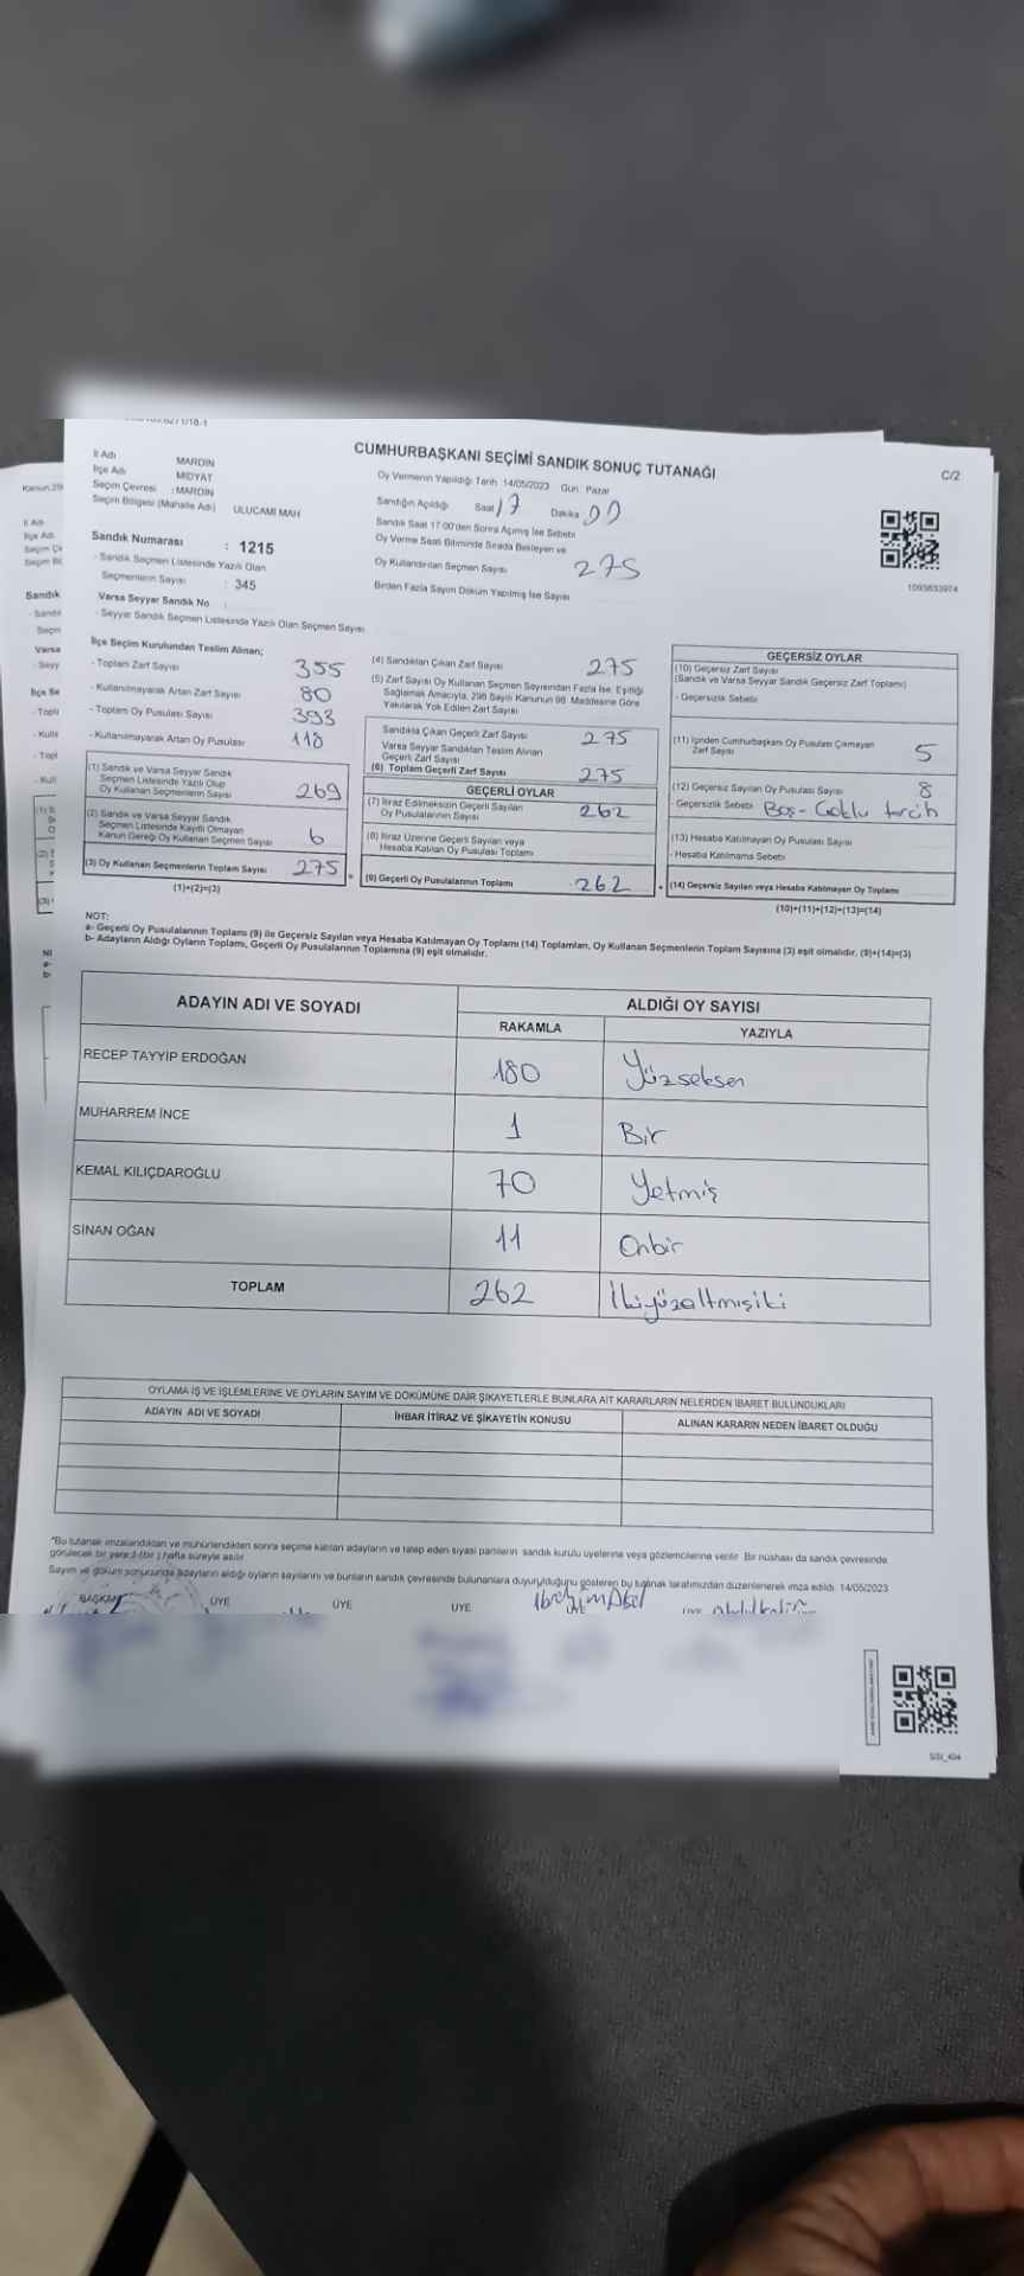 CUMHURBAŞKANI SEÇİMİ SANDIK SONUÇ TUTANAĞI
C/2
İl Adı MARDİN
İlçe Adı MİDYAT
Seçim Çevresi : MARDİN
Seçim Bölgesi (Mahalle Adı) ULUCAMİ MAH
Oy Vermenin Yapıldığı Tarih 14/05/2023 Gün Pazar
Sandığın Açıldığı Saat 17 Dakika 00
Sandık Saat 17:00'den Sonra Açılmış İse Sebebi
Oy Verme Saati Bitiminde Sırada Bekleyen ve
Oy Kullandırılan Seçmen Sayısı 275
Birden Fazla Sayım Döküm Yapılmış İse Sayısı
1095653974
Sandık Numarası : 1215
- Sandık Seçmen Listesinde Yazılı Olan
Seçmenlerin Sayısı : 345
Varsa Seyyar Sandık No :
- Seyyar Sandık Seçmen Listesinde Yazılı Olan Seçmen Sayısı
İlçe Seçim Kurulundan Teslim Alınan;
- Toplam Zarf Sayısı 355
- Kullanılmayarak Artan Zarf Sayısı 80
- Toplam Oy Pusulası Sayısı 393
- Kullanılmayarak Artan Oy Pusulası 118
(1) Sandık ve Varsa Seyyar Sandık
Seçmen Listesinde Yazılı Olup
Oy Kullanan Seçmenlerin Sayısı 269
(2) Sandık ve Varsa Seyyar Sandık
Seçmen Listesinde Kayıtlı Olmayan
Kanun Gereği Oy Kullanan Seçmen Sayısı 6
(3) Oy Kullanan Seçmenlerin Toplam Sayısı 275
(1)+(2)=(3)
(4) Sandıktan Çıkan Zarf Sayısı 275
(5) Zarf Sayısı Oy Kullanan Seçmen Sayısından Fazla İse, Eşitliği
Sağlamak Amacıyla, 298 Sayılı Kanunun 98. Maddesine Göre
Yakılarak Yok Edilen Zarf Sayısı
Sandıkta Çıkan Geçerli Zarf Sayısı 275
Varsa Seyyar Sandıktan Teslim Alınan
Geçerli Zarf Sayısı
(6) Toplam Geçerli Zarf Sayısı 275
GEÇERLİ OYLAR
(7) İtiraz Edilmeksizin Geçerli Sayılan
Oy Pusulalarının Sayısı 262
(8) İtiraz Üzerine Geçerli Sayılan veya
Hesaba Katılan Oy Pusulası Toplamı
(9) Geçerli Oy Pusulalarının Toplamı 262
GEÇERSİZ OYLAR
(10) Geçersiz Zarf Sayısı
(Sandık ve Varsa Seyyar Sandık Geçersiz Zarf Toplamı)
- Geçersizlik Sebebi
(11) İçinden Cumhurbaşkanı Oy Pusulası Çıkmayan
Zarf Sayısı 5
(12) Geçersiz Sayılan Oy Pusulası Sayısı 8
- Geçersizlik Sebebi Boş - Çoklu tercih
(13) Hesaba Katılmayan Oy Pusulası Sayısı
- Hesaba Katılmama Sebebi
(14) Geçersiz Sayılan veya Hesaba Katılmayan Oy Toplamı
(10)+(11)+(12)+(13)=(14)
NOT:
a- Geçerli Oy Pusulalarının Toplamı (9) ile Geçersiz Sayılan veya Hesaba Katılmayan Oy Toplamı (14) Toplamları, Oy Kullanan Seçmenlerin Toplam Sayısına (3) eşit olmalıdır. (9)+(14)=(3)
b- Adayların Aldığı Oyların Toplamı, Geçerli Oy Pusulalarının Toplamına (9) eşit olmalıdır.
ADAYIN ADI VE SOYADI ALDIĞI OY SAYISI
RAKAMLA YAZIYLA
RECEP TAYYİP ERDOĞAN 180 Yüzseksen
MUHARREM İNCE 1 Bir
KEMAL KILIÇDAROĞLU 70 Yetmiş
SİNAN OĞAN 11 Onbir
TOPLAM 262 İkiyüzaltmışiki
OYLAMA İŞ VE İŞLEMLERİNE VE OYLARIN SAYIM VE DÖKÜMÜNE DAİR ŞİKAYETLERLE BUNLARA AİT KARARLARIN NELERDEN İBARET BULUNDUKLARI
ADAYIN ADI VE SOYADI İHBAR İTİRAZ VE ŞİKAYETİN KONUSU ALINAN KARARIN NEDEN İBARET OLDUĞU
*Bu tutanak imzalandıktan ve mühürlendikten sonra seçime katılan adayların ve talep eden siyasi partilerin sandık kurulu üyelerine veya gözlemcilerine verilir. Bir nüshası da sandık çevresinde
görülecek bir yere 1 (bir) hafta süreyle asılır.
Sayım ve döküm sonucunda adayların aldığı oyların sayılarını ve bunların sandık çevresinde bulunanlara duyurulduğunu gösteren bu tutanak tarafımızdan düzenlenerek imza edildi. 14/05/2023
BAŞKAN ÜYE ÜYE ÜYE ÜYE